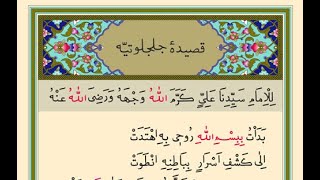 قصيدۀ جلجلوتيّه
لِلْاِمَامِ سَيِّدِنَا عَلِيٍّ كَرَّمَ اللّٰهُ وَجْهَهُ وَرَضِىَ اللّٰهُ عَنْهُ
بَدَأْتُ بِبِسْمِ اللّٰهِ رُوحِى بِهِ اهْتَدَتْ
اِلٰى كَشْفِ اَسْرَارٍ بِبَاطِنِهِ انْطَوَتْ